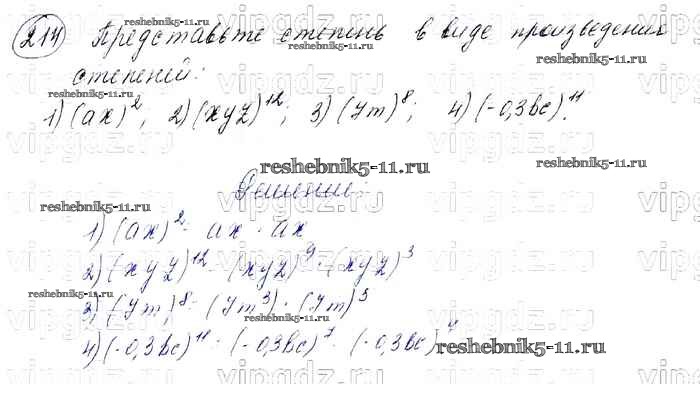 214 Представьте степень в виде произведения
степеней:
1) (ax)², 2) (xyz)¹²; 3) (7m)⁸; 4) (-0,3bc)¹¹.
Решение:
1) (ax)² = ax · ax
2) (xyz)¹² = (xyz)⁹ · (xyz)³
3) (7m)⁸ = (7m³) · (7m)⁵
4) (-0,3bc)¹¹ = (-0,3bc)⁷ · (-0,3bc)⁴
reshebnik5-11.ru
vipgdz.ru